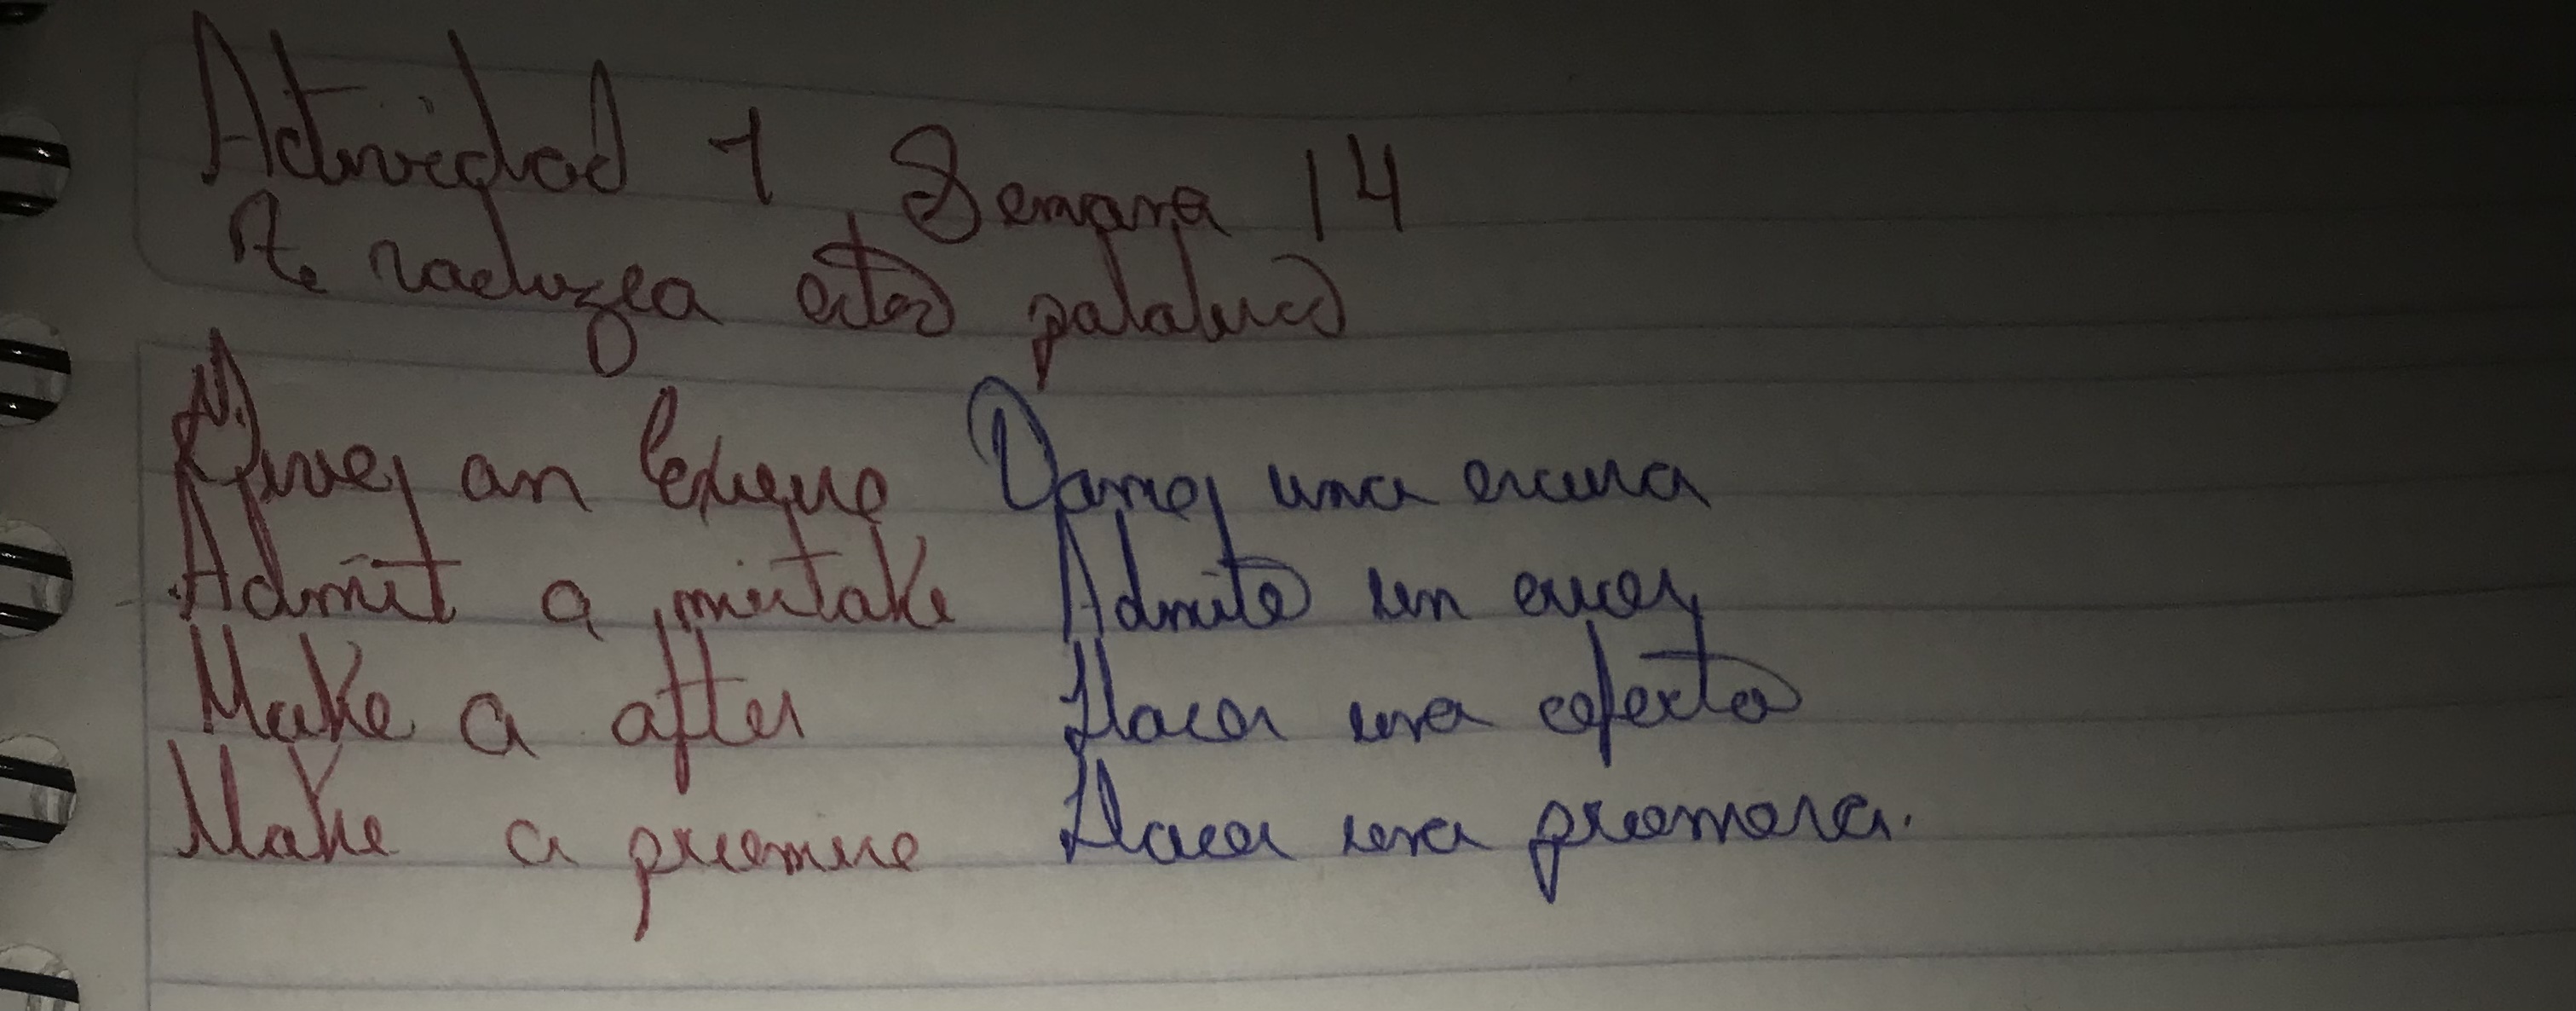 Actividad 1 Semana 14
Traduzca estas palabras
Give an Excuse Dame una excusa
Admit a mistake Admite un error
Make a after Hacer una oferta
Make a promise Hacer una promesa.